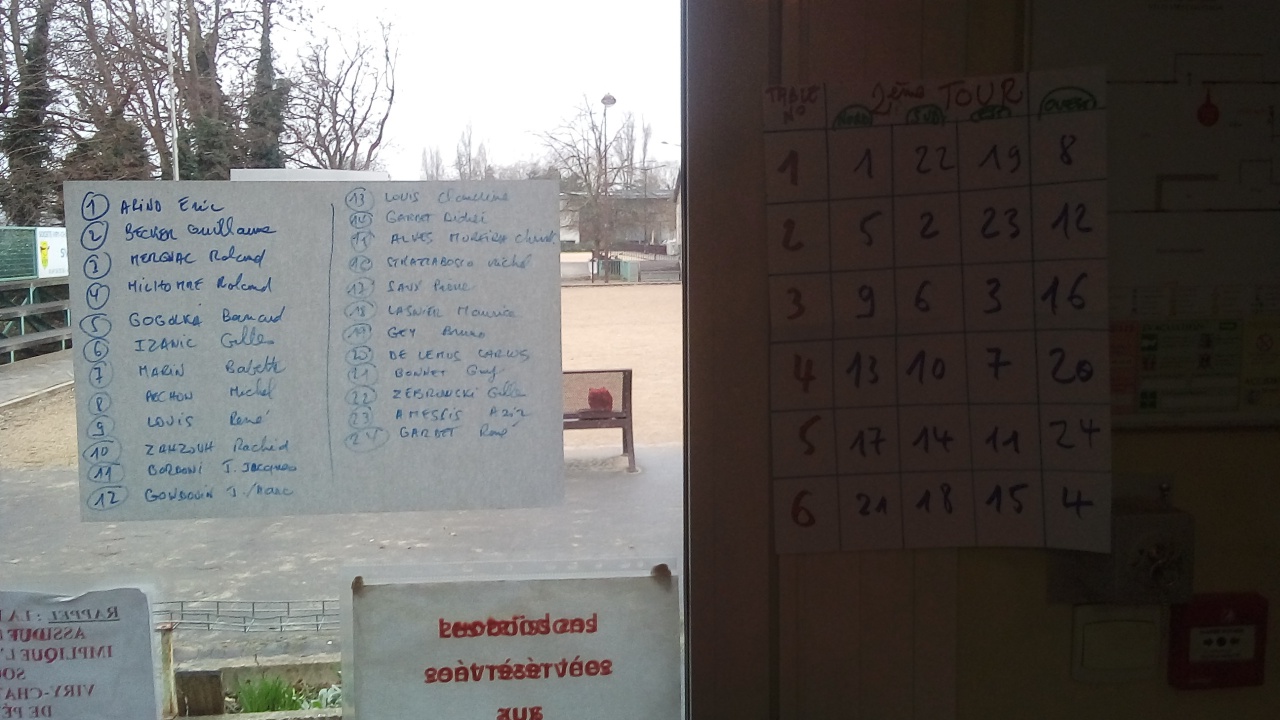 1 ARINO Eric
2 BECKER Guillaume
3 MERGNAC Roland
4 MILHOMME Roland
5 GOGOLKA Bernard
6 IZANIC Gilles
7 MARIN Babette
8 PECHON Michel
9 LOUIS René
10 ZAHZOUH Rachid
11 BORDONI J. Jacques
12 GONDOUIN J./Marc
13 LOUIS Claudine
14 GARBET Didier
15 ALVES MOREIRA
16 STRATTABOSCO Michel
17 SAUX Pierre
18 LASNIER Maurice
19 GEY Bruno
20 DE LEMOS CARLOS
21 BONNET Guy
22 ZEBROWSKI Gilles
23 AMESSIS AZIZ
24 GARBET René
TABLE N° 2ème TOUR
NORD SUD EST OUEST
1 1 22 19 8
2 5 2 23 12
3 9 6 3 16
4 13 10 7 20
5 17 14 11 24
6 21 18 15 4
RAPPEL : LA
ASSIDUE
IMPLIQUE L'
VIRY-CHAT
DE PÉ